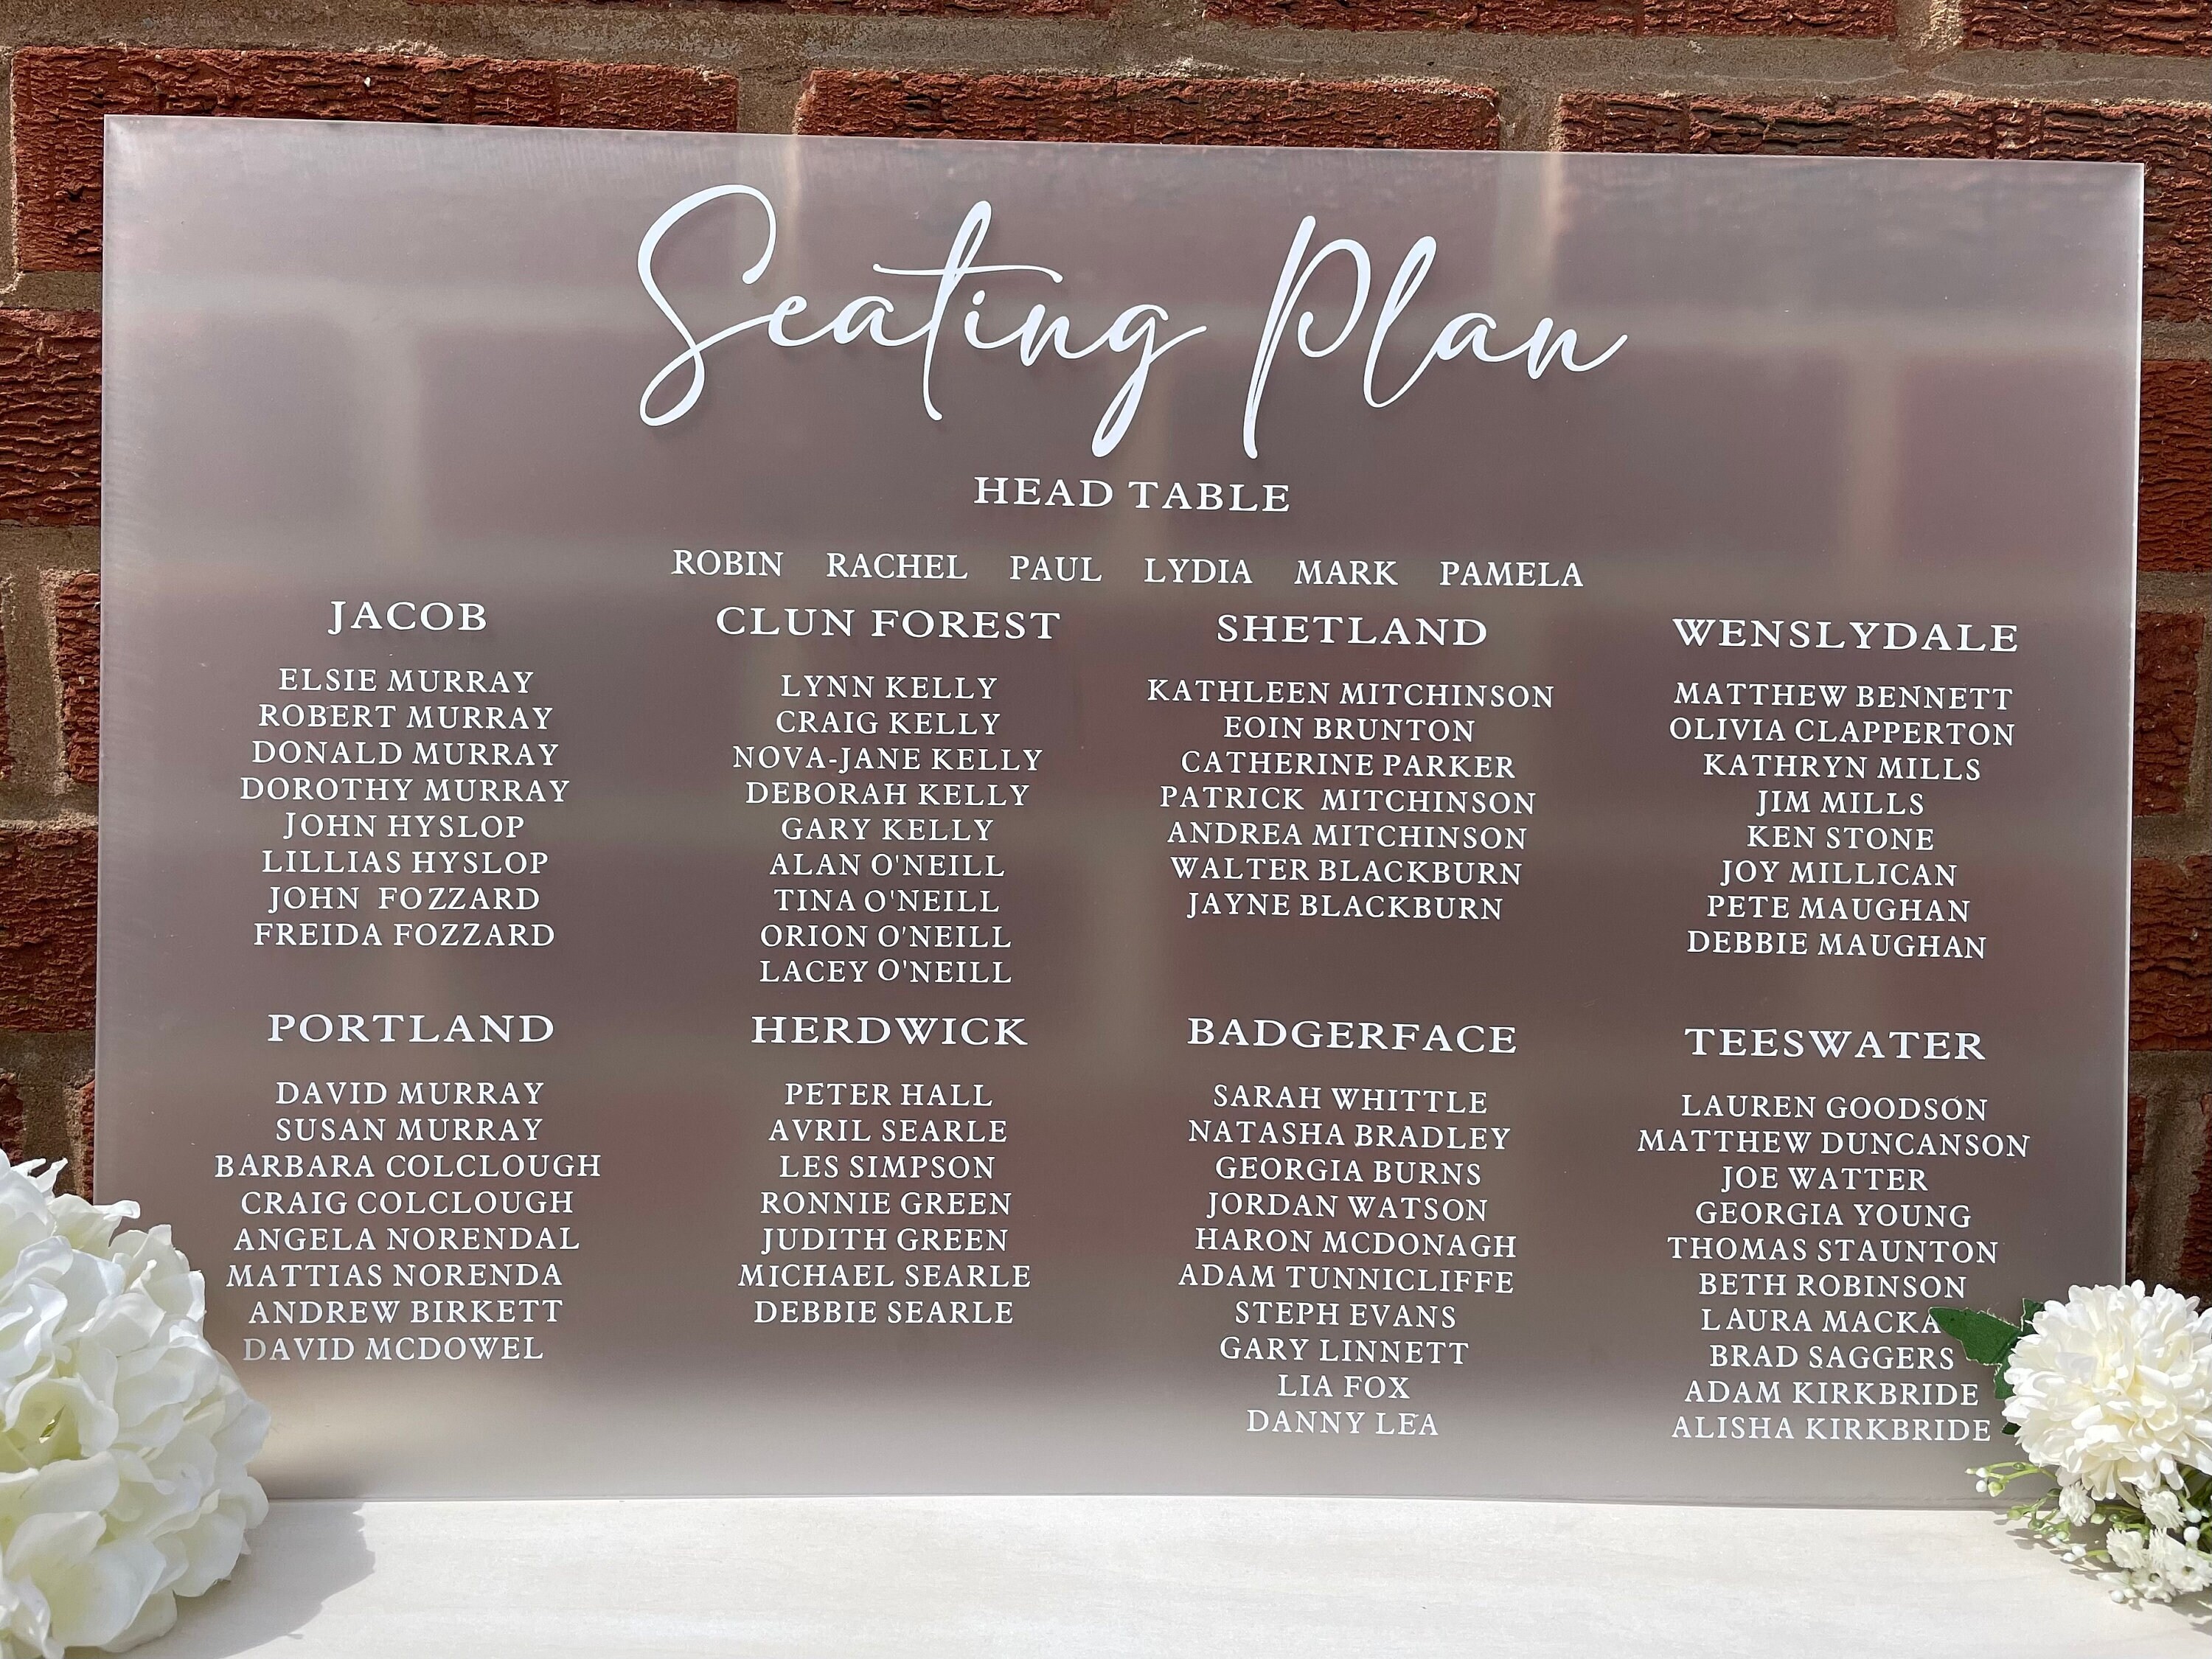 Seating Plan
HEAD TABLE
ROBIN RACHEL PAUL LYDIA MARK PAMELA
JACOB
ELSIE MURRAY
ROBERT MURRAY
DONALD MURRAY
DOROTHY MURRAY
JOHN HYSLOP
LILLIAS HYSLOP
JOHN FOZZARD
FREIDA FOZZARD
CLUN FOREST
LYNN KELLY
CRAIG KELLY
NOVA-JANE KELLY
DEBORAH KELLY
GARY KELLY
ALAN O'NEILL
TINA O'NEILL
ORION O'NEILL
LACEY O'NEILL
SHETLAND
KATHLEEN MITCHINSON
EOIN BRUNTON
CATHERINE PARKER
PATRICK MITCHINSON
ANDREA MITCHINSON
WALTER BLACKBURN
JAYNE BLACKBURN
WENSLYDALE
MATTHEW BENNETT
OLIVIA CLAPPERTON
KATHRYN MILLS
JIM MILLS
KEN STONE
JOY MILLICAN
PETE MAUGHAN
DEBBIE MAUGHAN
PORTLAND
DAVID MURRAY
SUSAN MURRAY
BARBARA COLCLOUGH
CRAIG COLCLOUGH
ANGELA NORENDAL
MATTIAS NORENDA
ANDREW BIRKETT
DAVID MCDOWEL
HERDWICK
PETER HALL
AVRIL SEARLE
LES SIMPSON
RONNIE GREEN
JUDITH GREEN
MICHAEL SEARLE
DEBBIE SEARLE
BADGERFACE
SARAH WHITTLE
NATASHA BRADLEY
GEORGIA BURNS
JORDAN WATSON
HARON MCDONAGH
ADAM TUNNICLIFFE
STEPH EVANS
GARY LINNETT
LIA FOX
DANNY LEA
TEESWATER
LAUREN GOODSON
MATTHEW DUNCANSON
JOE WATTER
GEORGIA YOUNG
THOMAS STAUNTON
BETH ROBINSON
LAURA
BRAD SAGGERS
ADAM KIRKBRIDE
ALISHA KIRKBRIDE